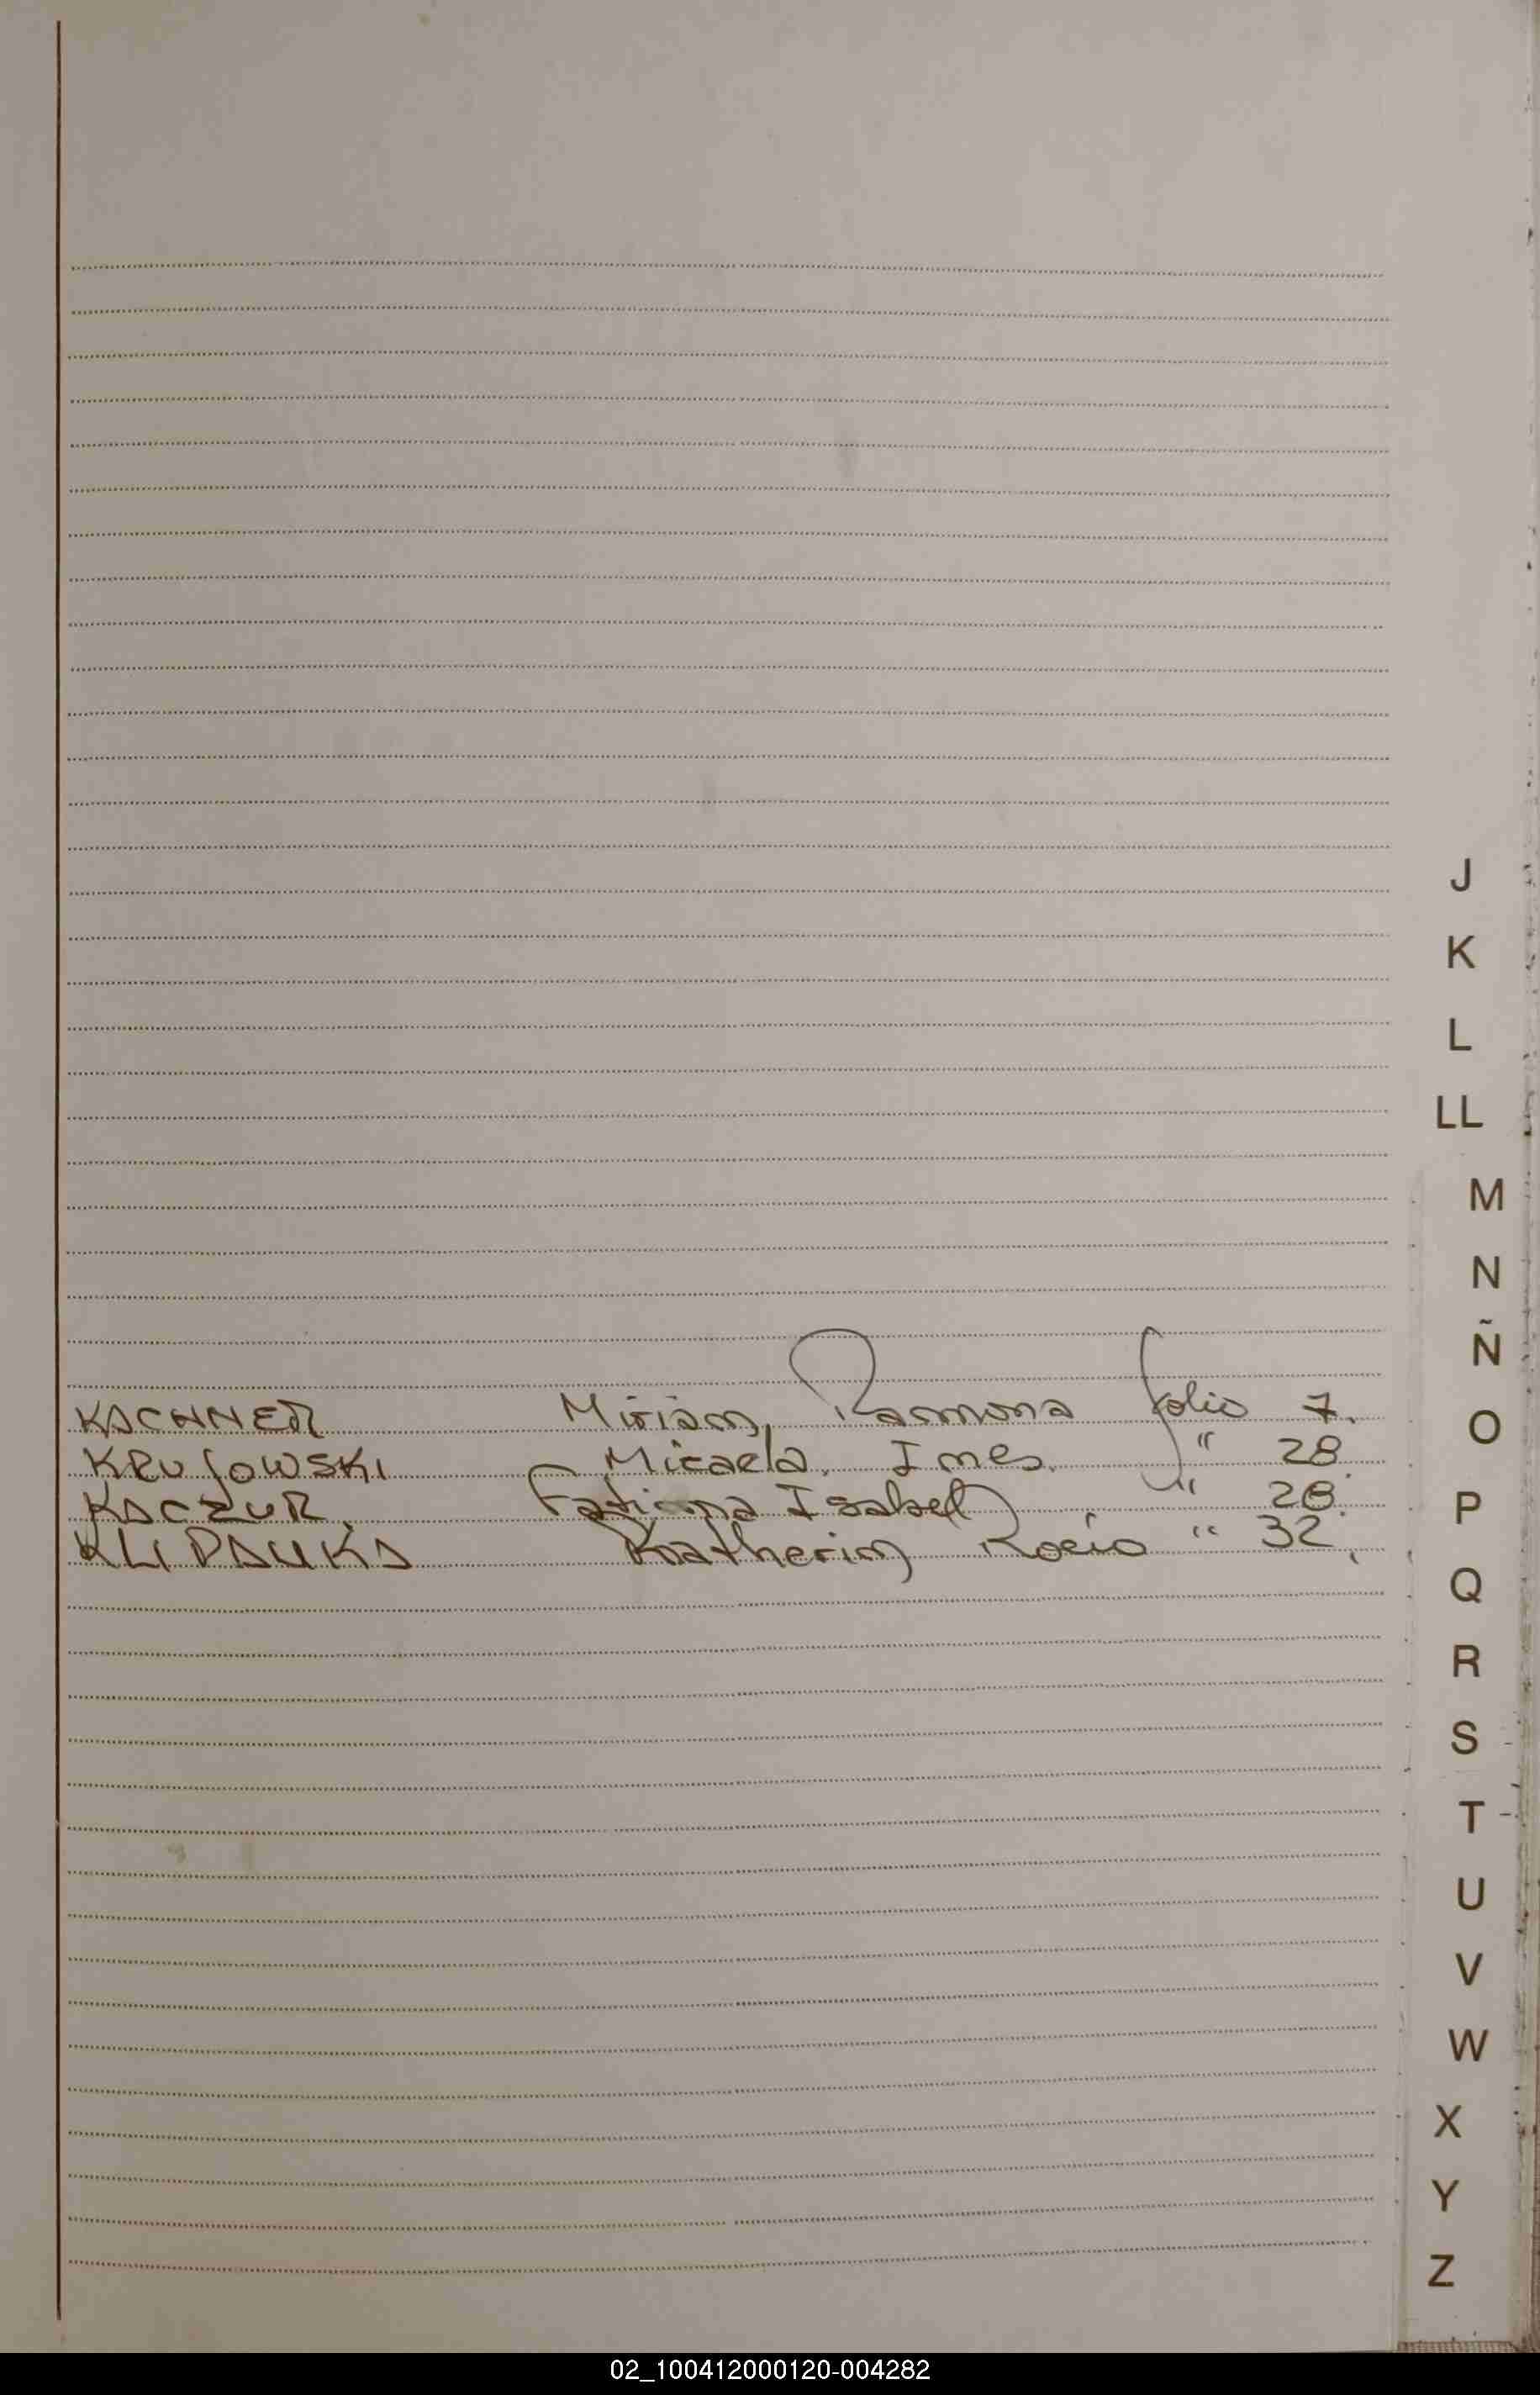 J
K
L
LL
M
N
Ñ
KACHNER Miriam, Ramona folio 7.
O
KRUJOWSKI Micaela. Ines. " 28
KACZUR. Isabel " 28.
P
KLIPAUKA Katherin Rocio " 32.
Q
R
S
T
U
V
W
X
Y
Z
02_100412000120-004282